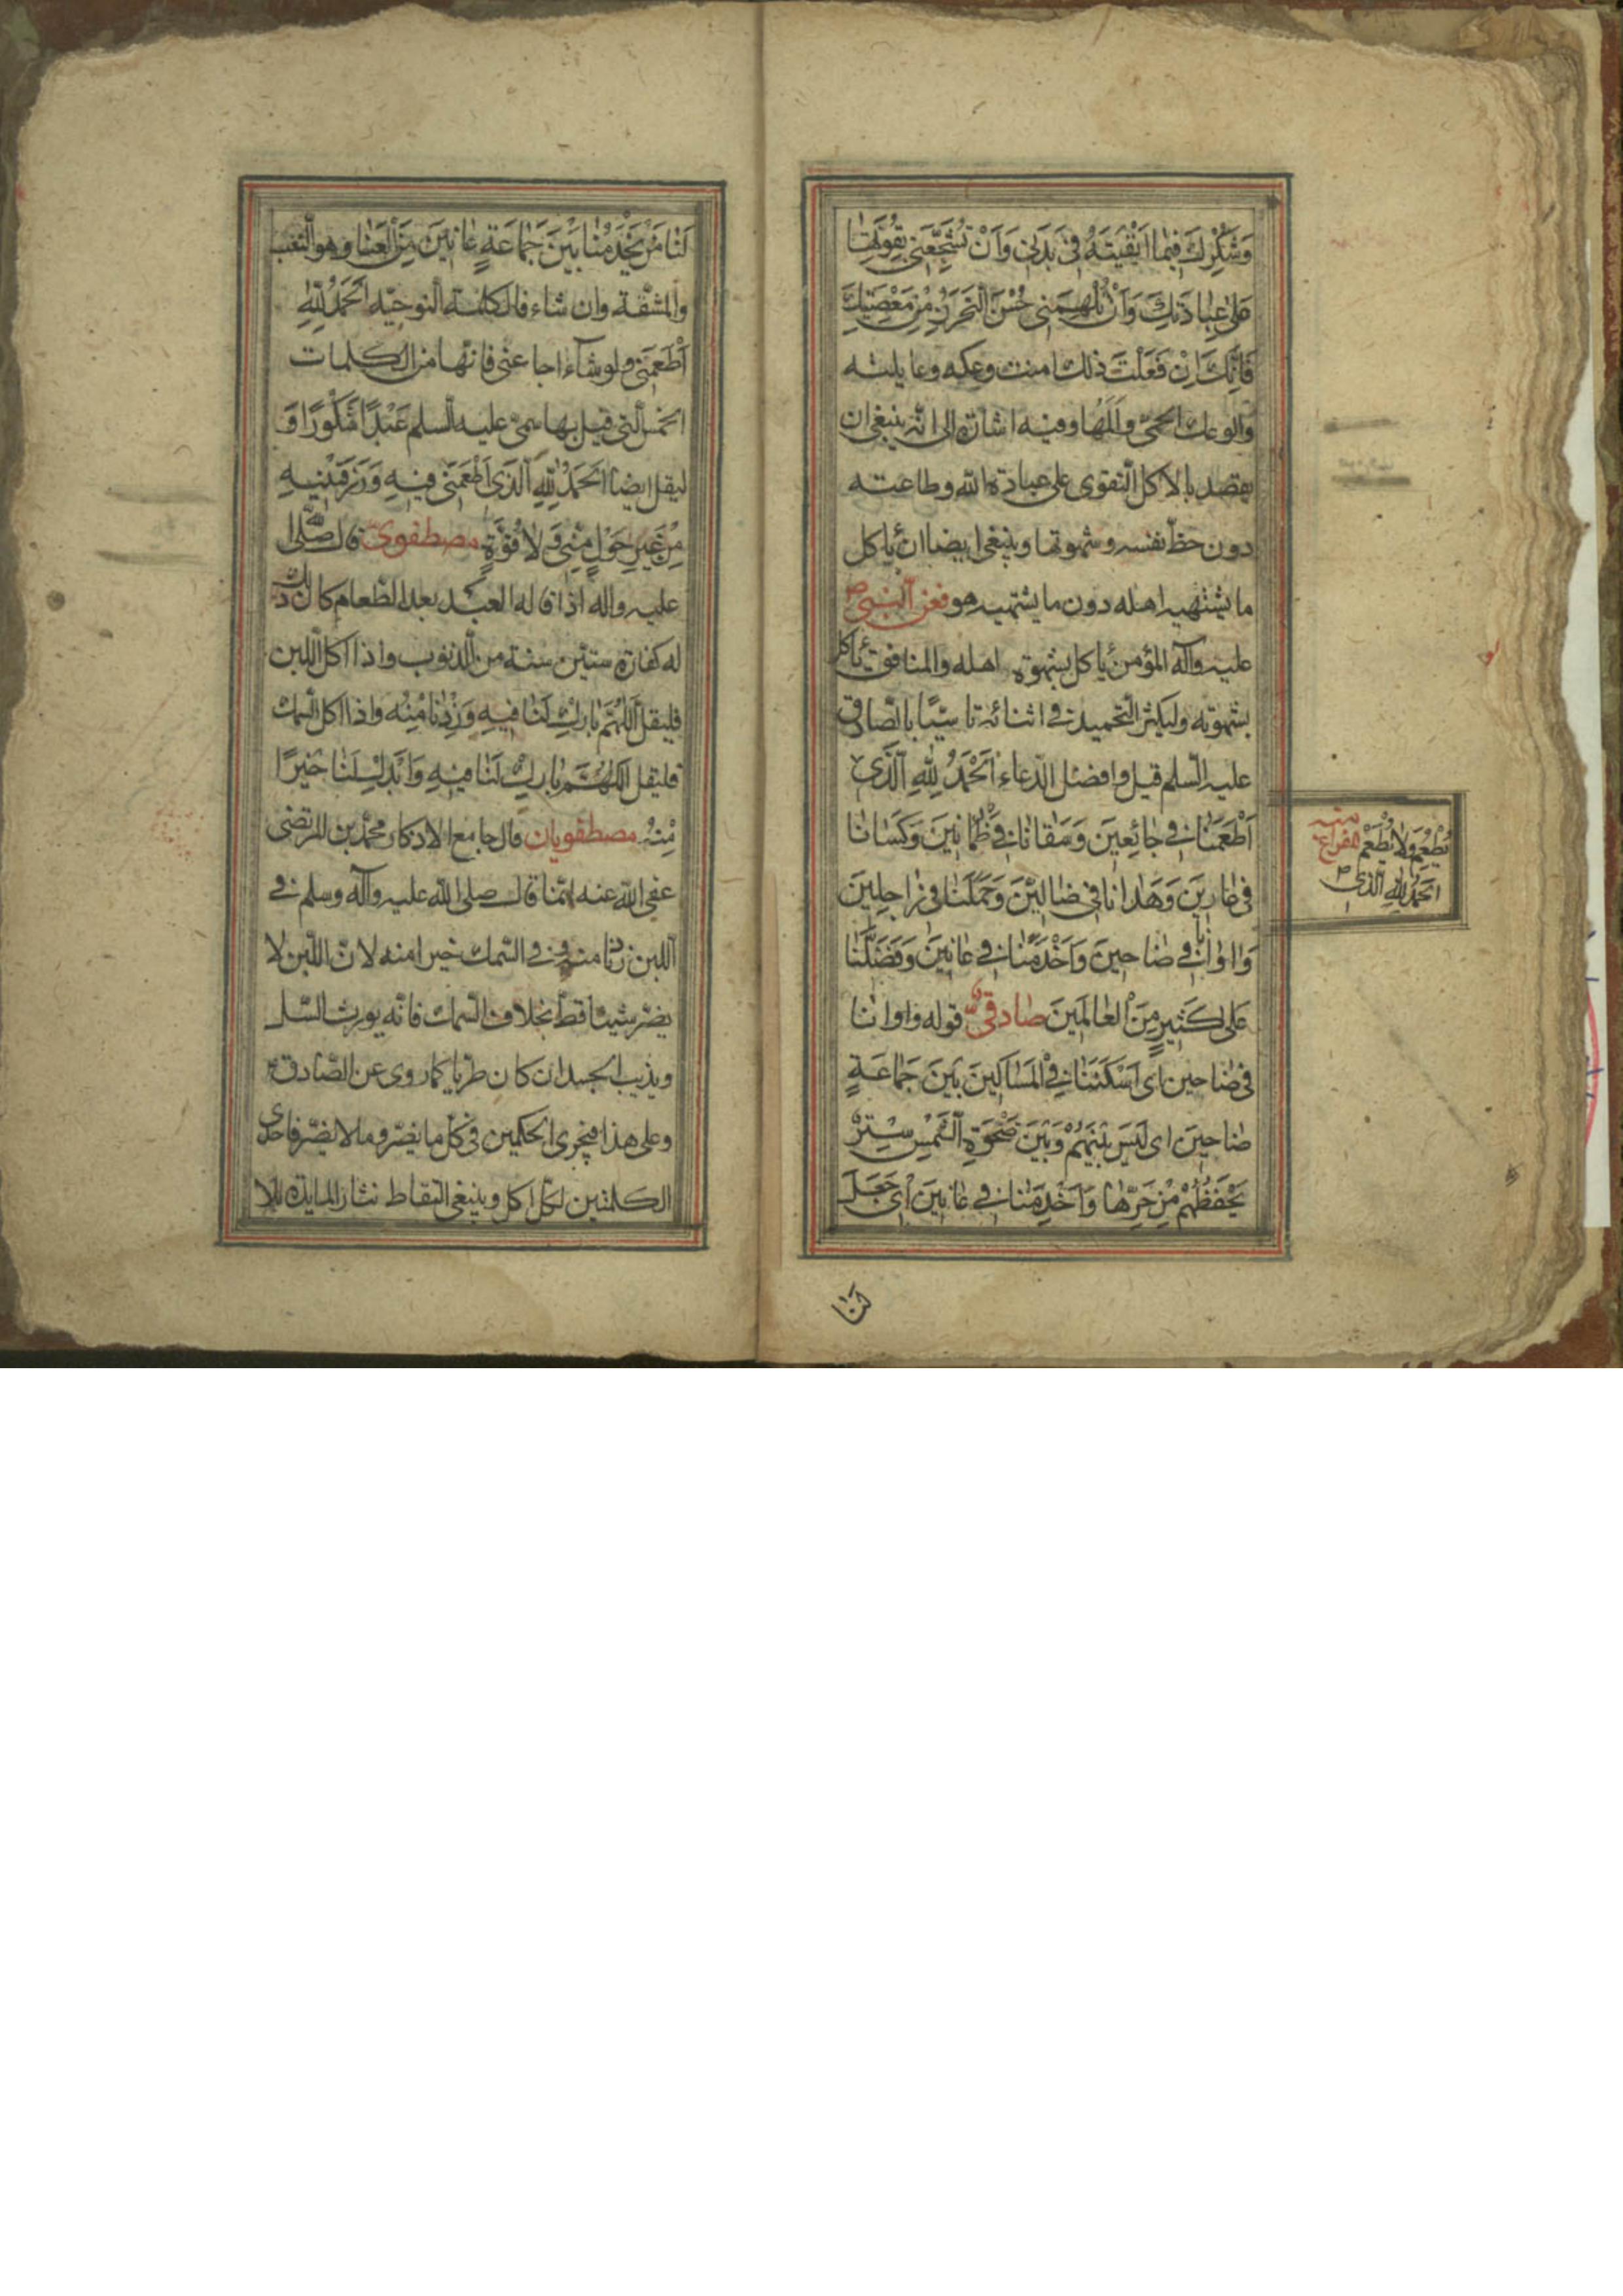 وَشُكْرِكَ فِيمَا اَبْقَيْتَهُ فِى بَدَنِى وَاَنْ تُشَجِّعَنِى بِقُوَّتِهَا
عَلٰى عِبَادَتِكَ وَاَنْ تُلْهِمَنِى حُسْنَ التَّحَرُّزِ مِنْ مَعْصِيَتِكَ
فَاِنَّكَ اِنْ فَعَلْتَ ذلك امنت وعكه وغايلته
والوعك الحمّى والمها وفيه اشارة الى انّه ينبغى ان
يقصد بالاكل التّقوى على عبادة الله وطاعته
دون حظّ نفسه وشهوتها وينبغى ايضا ان يأكل
ما يشتهيه اهله دون ما يشتهيه هو فعن النّبىّ ص
عليه وآله المؤمن يأكل بشهوة اهله والمنافق يأكل
بشهوته وليكثر التّحميد فى اثنائه تأسّيًا بالصّادق
عليه السّلم قيل وافضل الدّعاء اَلْحَمْدُ لِلّٰهِ الَّذِى
اَطْعَمَنَا فِى جَائِعِينَ وَسَقَانَا فِى ظَمْانِينَ وَكَسَانَا
فِى عَارِينَ وَهَدَانَا فِى ضَالِّينَ وَحَمَلَنَا فِى رَاجِلِينَ
وَاٰوَانَا فِى ضَاحِينَ وَاَخْدَمَنَا فِى عَانِينَ وَفَضَّلَنَا
عَلٰى كَثِيرٍ مِنَ الْعَالَمِينَ صادقىّ قوله واوانا
فى ضاحين اى اَسْكَنَنَا فِى الْمَسَاكِينَ بَيْنَ جَمَاعَةٍ
ضَاحِينَ اى لَيْسَ بَيْنَهُمْ وَبَيْنَ ضَحْوَةِ الشَّمْسِ سِتْرٌ
يَحْفَظُهُمْ مِنْ حَرِّهَا وَاَخْدَمَنَا فِى عَانِينَ اَى جَعَلَ
يُطْعِمُ وَلَا يُطْعَمْ
اَلْحَمْدُ لِلّٰهِ الَّذِى
لَنَا
لَنَا مَنْ يَخْدِمُنَا بَيْنَ جَمَاعَةٍ عَانِينَ مِنَ الْعَنَا وهو التّعب
والمشقّة وان شاء قال كلمة النوحيّه اَلْحَمْدُ لِلّٰهِ
اَطْعَمَنِى ولو شاء اجاعنى فانّها من الكلمات
الخمس الّتى قيل بها سمّى عليه السلم عَبْدًا شَكُورًا وَ
ليقل ايضا اَلْحَمْدُ لِلّٰهِ الَّذِى اَطْعَمَنِى فِيهِ وَرَزَقَنِيهِ
مِنْ غَيْرِ حَوْلٍ مِنِّى وَلَا قُوَّةٍ مصطفوىّ قال صلّى الله
عليه واله اذا قاله العبد بعد الطّعام كان ذلك
له كفارة ستّين سنة من الذنوب واذا اكل اللبن
فليقل اَللّٰهُمَّ بَارِكْ لَنَا فِيهِ وَزِدْنَا مِنْهُ واذا اكل السّمك
فليقل اَللّٰهُمَّ بَارِكْ لَنَا فِيهِ وَاَبْدِلْ لَنَا خَيْرًا
مِنْهُ مصطفويان قال جامع الاذكار محمّد بن المرتضى
عفى الله عنه انّما قال صلى الله عليه وآله وسلم فى
اللبن زدنا منه وفى السّمك خيرا منه لانّ اللبن لا
يضرّ شيئا قط بخلاف السّمك فانّه يورث السّل
ويذيب الجسد ان كان طريا كما روى عن الصّادق ع
وعلى هذا فيجرى الحكمين فى كلّ ما يضرّ وما لا يضرّ فاحدى
الكلمتين لكلّ اكل وينبغى التقاط نثار المايدة لئلا